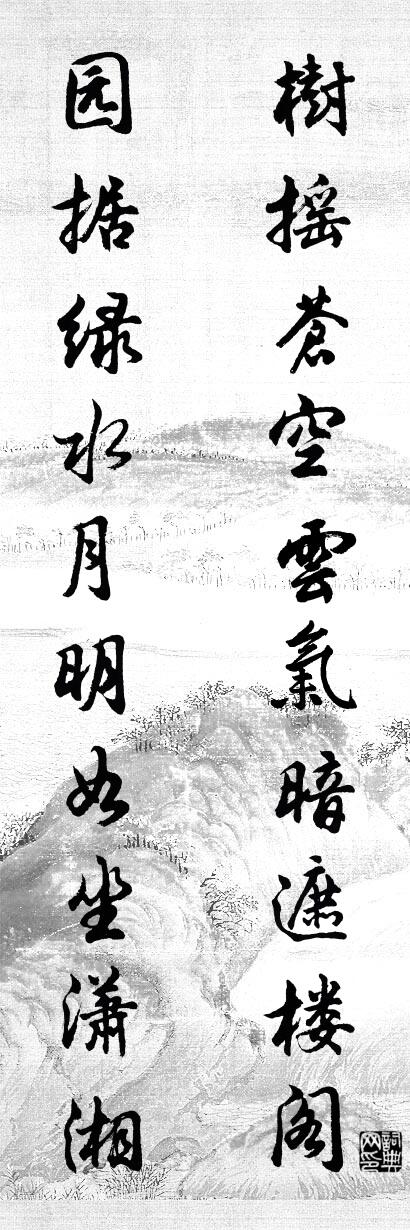 樹摇蒼空雲氣暗遮楼阁
园据绿水月明如坐潇湘
詞典网印